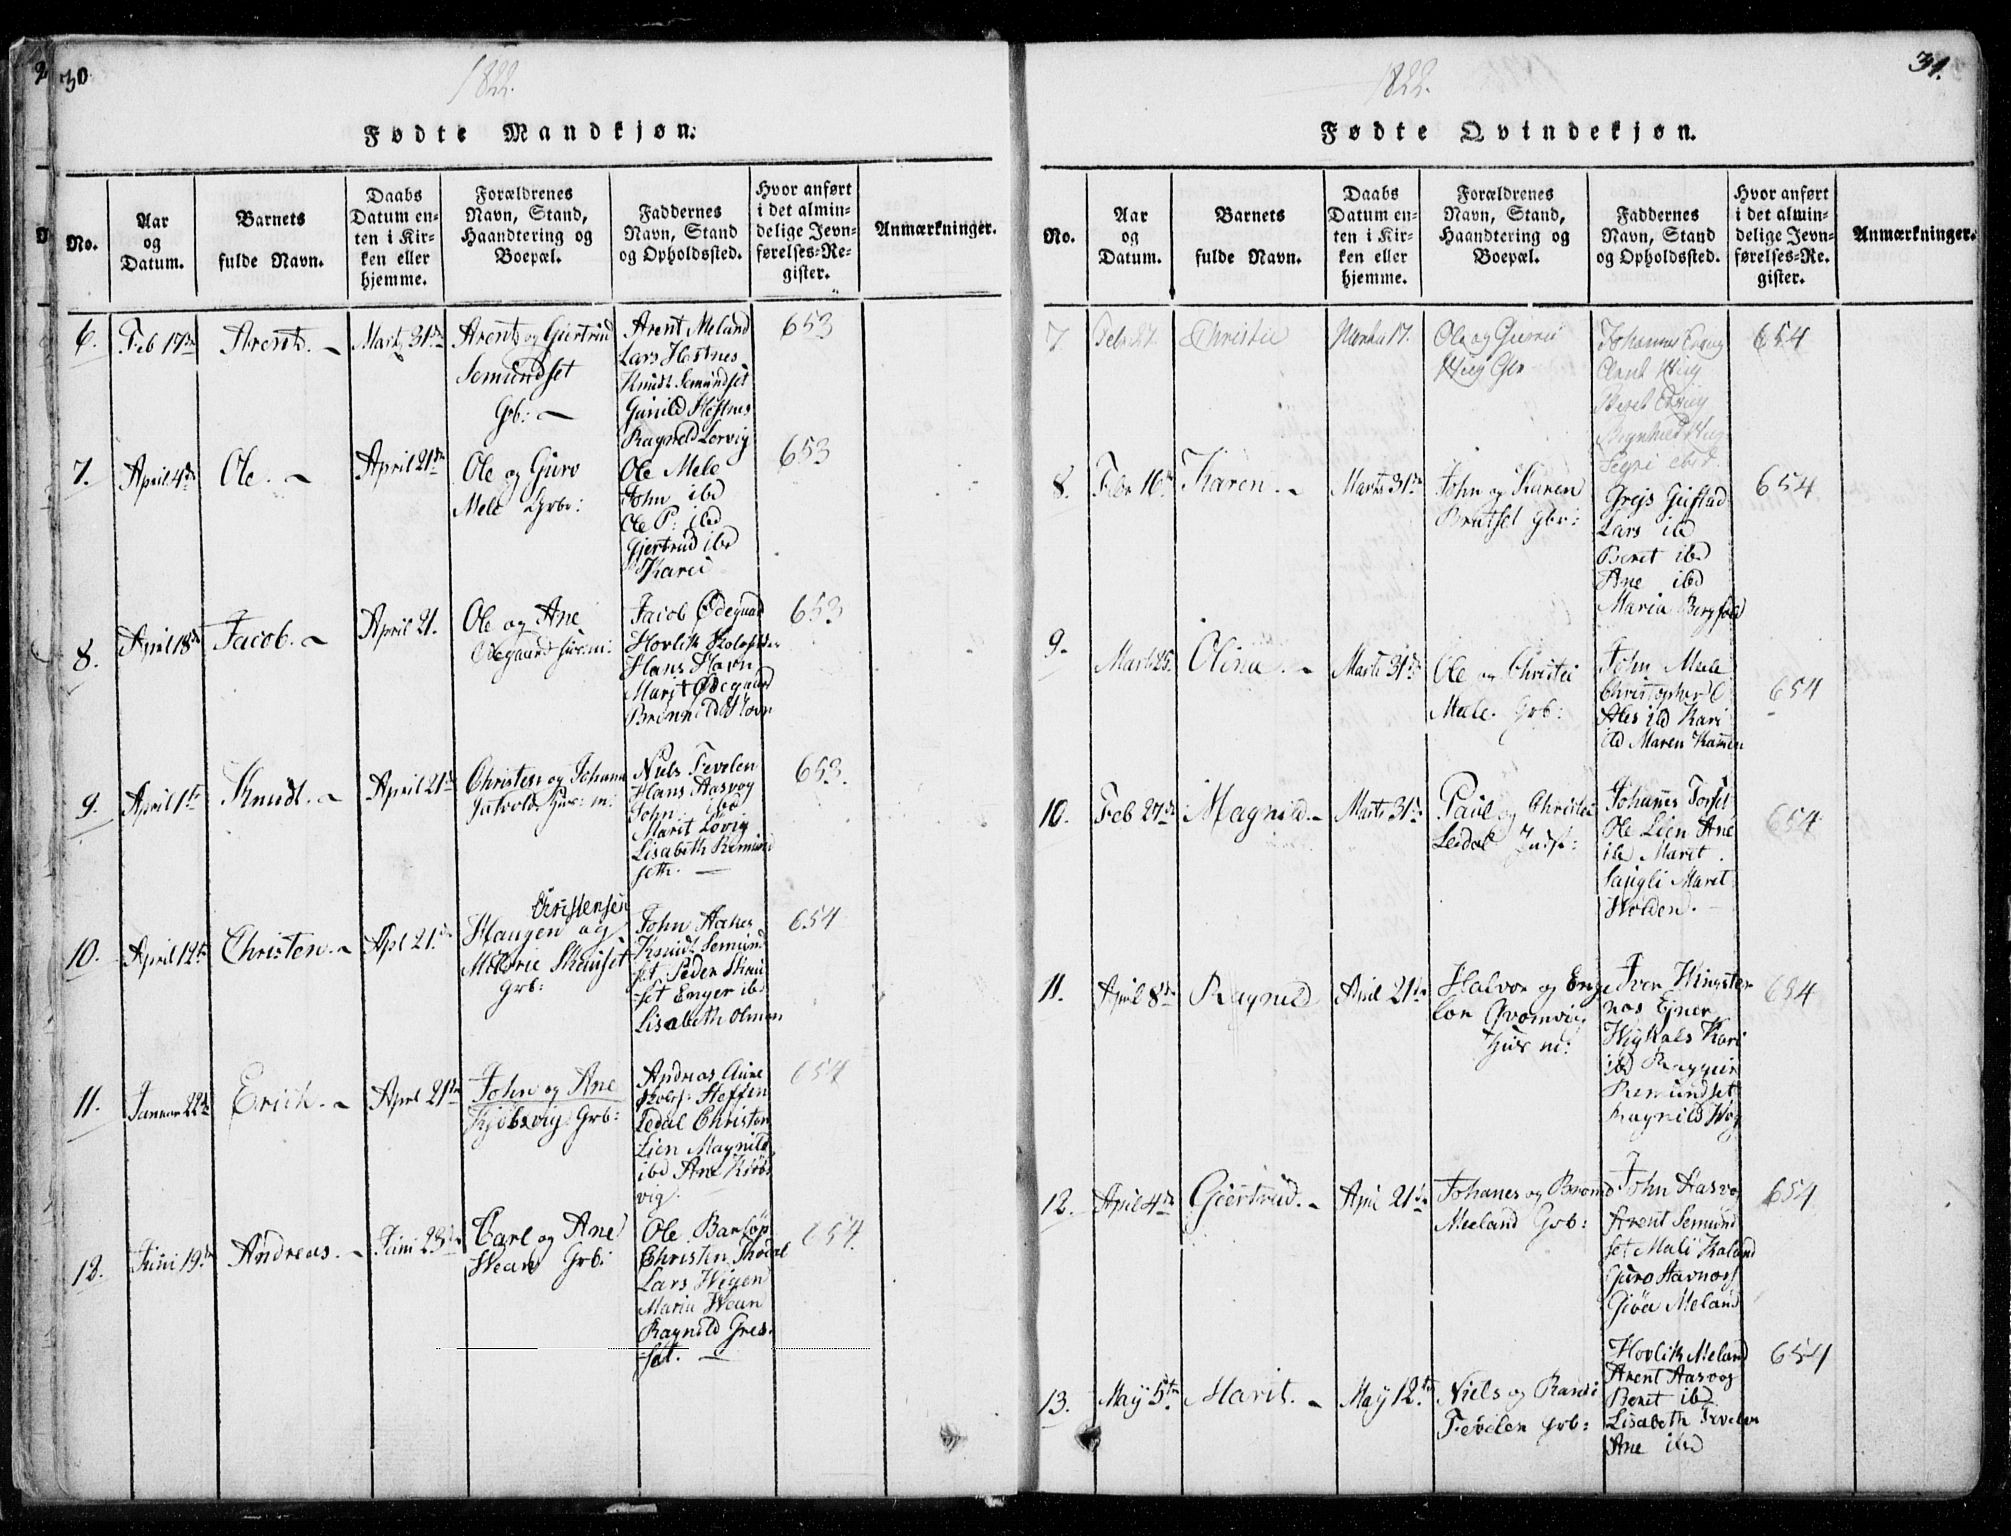 30
1822.
Fødte Mandkjøn.
No.
Aar
og
Datum.
Barnets
fulde Navn.
Daabs
Datum en-
ten i Kir-
ken eller
hjemme.
Forældrenes
Navn, Stand,
Haandtering og
Boepæl.
Faddernes
Navn, Stand
og Opholdssted.
Hvor anført
i det almin-
delige Jevn-
førelses-Re-
gister.
Anmærkninger.
6.
Feb 17de
Arent.
Marts 31te
Arent og Giertrud
Semundset
Grb:
Arent Meland
Lars Hestnes
Knudt Semundset
Gunild Hestnes
Ragnild Lervig
653
7.
April 4de
Ole.
April 21de
Ole og Guro
Mele Grb:
Ole Mele
John ibd
Ole P: ibd
Gjertrud ibd
Karei
653
8.
April 18de
Jacob.
April 21.
Ole og Ane
Ødegaard Huusm:
Jacob Ødegaard
Hovlik
Hans Havn
Marit Ødegaard
Havn
653
9.
April 1te
Knudt.
April 21de
Christen og Johana
Huus: m:
Niels Fevelen
Hans Aasvog
John ibd
Marit Lövig
Lisabeth Remund
seth.
653.
10.
April 12te
Christen.
Apl 21.
Christensen
Haugen og
Skauset
Grb:
John Aakes
Knudt Semund
set Peder
set Enger ibd
Lisabeth Olmon
654
11.
Januar 22de
Erick.
April 21te
John og Ane
Kjöbsvig Grb:
Andreas Aune
Steffen
Ledal Christen
Lien Magnild
ibd Ane Kiöbs
vig.
654
12.
Juni 19de
Andreas.
Juni 23de
Carl og Ane
Wean Grb:
Ole Barløp
Christen Skodal
Lars Wigen
Maria Wean
Ragnild Gres-
set.
654.
31.
1822.
Fødte Qvindekjøn.
No.
Aar
og
Datum.
Barnets
fulde Navn.
Daabs
Datum en-
ten i Kir-
ken eller
hjemme.
Forældrenes
Navn, Stand,
Haandtering og
Boepæl.
Faddernes
Navn, Stand
og Opholdssted.
Hvor anført
i det almin-
delige Jevn-
førelses-Re-
gister.
Anmærkninger.
7
Feb 27.
Christie
Marts 17.
Ole og
Wiig Gbr
Johannes
Arnt Wiig
Beret
Wiig
ibid.
654
8.
Febr 16de
Karen.
Marts 31te
John og Karen
Brutset Gbr:
Grejs Guistad
Lars ibd
Beret ibd
Ane ibd
Maria Bergfald
654
9.
Marts 25.
Olina.
Marts 31te
Ole og Christei
Meele. Grb:
John Meele
Christopher
ibd Kari
ibd Maren
654
10.
Feb 27de
Magnild.
Marts 31te
Paul og Christei
Ledal Indst:
Johannes Torset
Ole Lien Ane
ibd Marit
Marit
Holden.
654
11.
April 8de
Ragnild
April 21te
Halvor og Enge
lor Qvamvig
Huus m:
Iver Kingster
nos Ejner
Kari
ibd
Remundset
Ragnild Wog
654
12.
April 4de
Giertrud.
April 21te
Johanes og
Meeland Grb:
John Aasvog
Arent Semund
set Mali Kaland
Guro
Giöa Meland
654
13.
May 5te
Marit.
May 12te
Niels og Randi
Fevelen Grb:
Hovlik Meland
Arent Aasvog
Beret ibd
Lisabeth Fevelen
Ane ibd
654